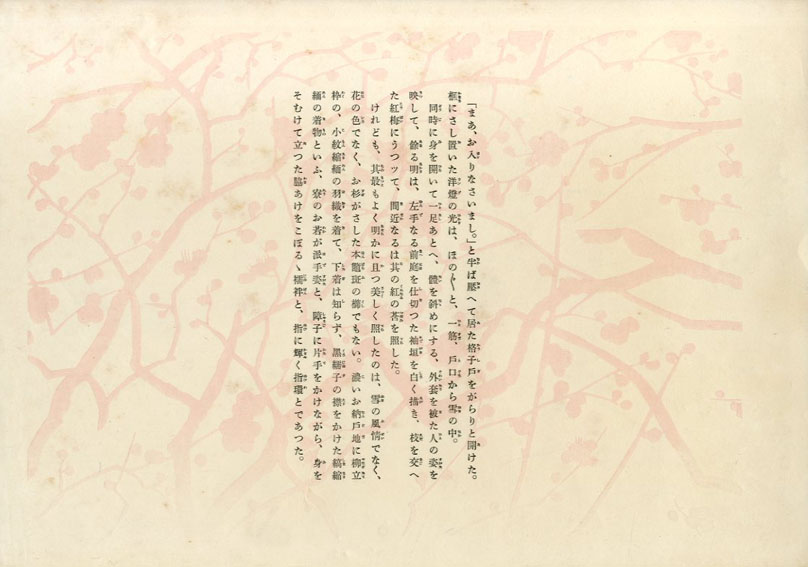 「まあ、お入りなさいまし。」と半ば壓へて居た格子戸をがらりと開けた。
框にさし置いた洋燈の光は、ほの〲と、一筋、戸口から雪の中。
同時に身を開いて一足あとへ、體を斜めにする、外套を被た人の姿を
映して、餘る明は、左手なる前庭を仕切つた袖垣を白く描き、枝を交へ
た紅梅にうつッて、間近なるは其の紅の莟を照した。
けれども、其最もよく明かに且つ美しく照したのは、雪の風情でなく、
花の色でなく、お杉がさした本鼈甲の櫛でもない。濃いお納戸地に柳立
枠の、小紋縮緬の羽織を着て、下着は知らず、黒繻子の襟をかけた縞縮
緬の着物といふ、寮のお若が派手姿と、障子に片手をかけながら、身を
そむけて立つた脇あけをこぼるゝ襦袢と、指に輝く指環とであつた。